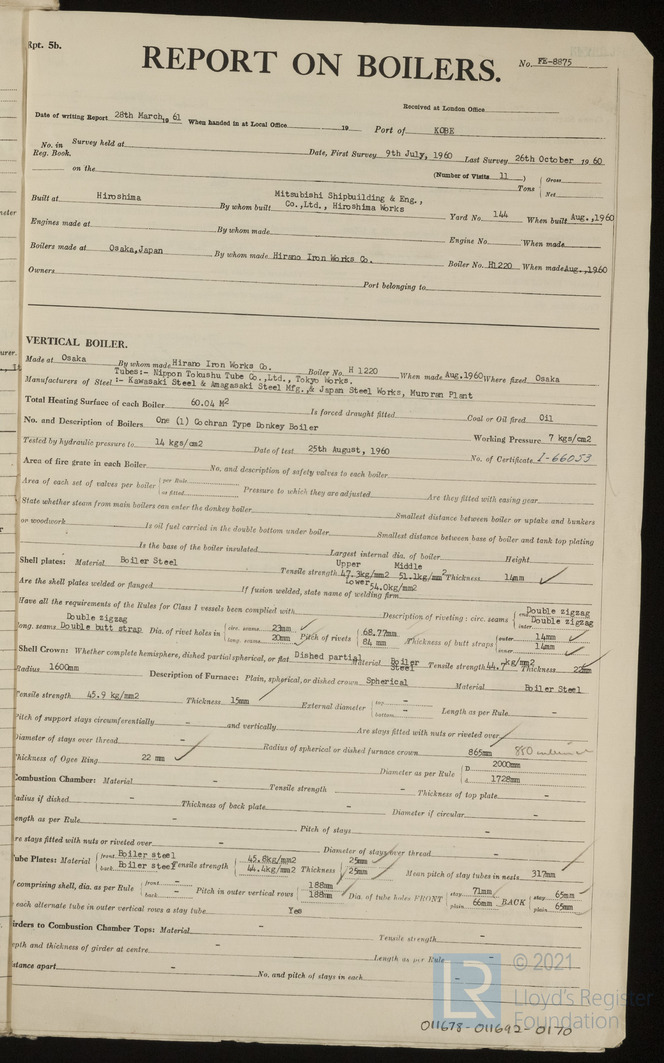 Rpt. 5b.
REPORT ON BOILERS.
No. FE-8875
Received at London Office
Date of writing Report 28th March, 19 61 When handed in at Local Office 19 Port of KOBE
No. in Reg. Book. Survey held at Date, First Survey 9th July, 1960 Last Survey 26th October 19 60
on the (Number of Visits 11 ) Tons Gross Net
Built at Hiroshima By whom built Mitsubishi Shipbuilding & Eng., Co.,Ltd., Hiroshima Works Yard No. 144 When built Aug.,1960
Engines made at By whom made Engine No. When made
Boilers made at Osaka,Japan By whom made Hirano Iron Works Co. Boiler No. H1220 When made Aug.,1960
Owners Port belonging to
VERTICAL BOILER.
Made at Osaka By whom made Hirano Iron Works Co. Boiler No. H 1220 When made Aug.1960 Where fixed Osaka
Tubes:- Nippon Tokushu Tube Co.,Ltd., Tokyo Works.
Manufacturers of Steel :- Kawasaki Steel & Amagasaki Steel Mfg.,& Japan Steel Works, Muroran Plant
Total Heating Surface of each Boiler 60.04 M2 Is forced draught fitted Coal or Oil fired Oil
No. and Description of Boilers One (1) Cochran Type Donkey Boiler Working Pressure 7 kgs/cm2
Tested by hydraulic pressure to 14 kgs/cm2 Date of test 25th August, 1960 No. of Certificate I-66053
Area of fire grate in each Boiler No. and description of safety valves to each boiler
Area of each set of valves per boiler per Rule as fitted Pressure to which they are adjusted Are they fitted with easing gear
State whether steam from main boilers can enter the donkey boiler Smallest distance between boiler or uptake and bunkers
or woodwork Is oil fuel carried in the double bottom under boiler Smallest distance between base of boiler and tank top plating
Is the base of the boiler insulated Largest internal dia. of boiler Height
Shell plates: Material Boiler Steel Tensile strength Upper 47.3kg/mm2 Middle 51.1kg/mm2 Lower 54.0kg/mm2 Thickness 14mm
Are the shell plates welded or flanged If fusion welded, state name of welding firm
Have all the requirements of the Rules for Class I vessels been complied with Description of riveting: circ. seams end Double zigzag inter. Double zigzag
long. seams Double zigzag Double butt strap Dia. of rivet holes in circ. seams 23mm long. seams 20mm Pitch of rivets 68.77mm 84 mm Thickness of butt straps outer 14mm inner 14mm
Shell Crown: Whether complete hemisphere, dished partial spherical, or flat Dished partial Material Boiler Steel Tensile strength 44.7kg/mm2 Thickness 22mm
Radius 1600mm Description of Furnace: Plain, spherical, or dished crown Spherical Material Boiler Steel
Tensile strength 45.9 kg/mm2 Thickness 15mm External diameter top - bottom - Length as per Rule -
Pitch of support stays circumferentially - and vertically - Are stays fitted with nuts or riveted over -
Diameter of stays over thread - Radius of spherical or dished furnace crown 865mm 880
Thickness of Ogee Ring 22 mm Diameter as per Rule D 2000mm d 1728mm
Combustion Chamber: Material - Tensile strength - Thickness of top plate -
Radius if dished - Thickness of back plate - Diameter if circular -
Length as per Rule - Pitch of stays -
Are stays fitted with nuts or riveted over - Diameter of stays over thread -
Tube Plates: Material front Boiler steel back Boiler steel Tensile strength 45.8kg/mm2 44.4kg/mm2 Thickness 25mm 25mm Mean pitch of stay tubes in nests 317mm
If comprising shell, dia. as per Rule front - back - Pitch in outer vertical rows 188mm 188mm Dia. of tube holes FRONT stay 71mm plain 66mm BACK stay 65mm plain 65mm
each alternate tube in outer vertical rows a stay tube Yes
Girders to Combustion Chamber Tops: Material - Tensile strength -
Depth and thickness of girder at centre - Length as per Rule -
Distance apart - No. and pitch of stays in each -
LR © 2021
Lloyd's Register
Foundation
011678-011692-0170